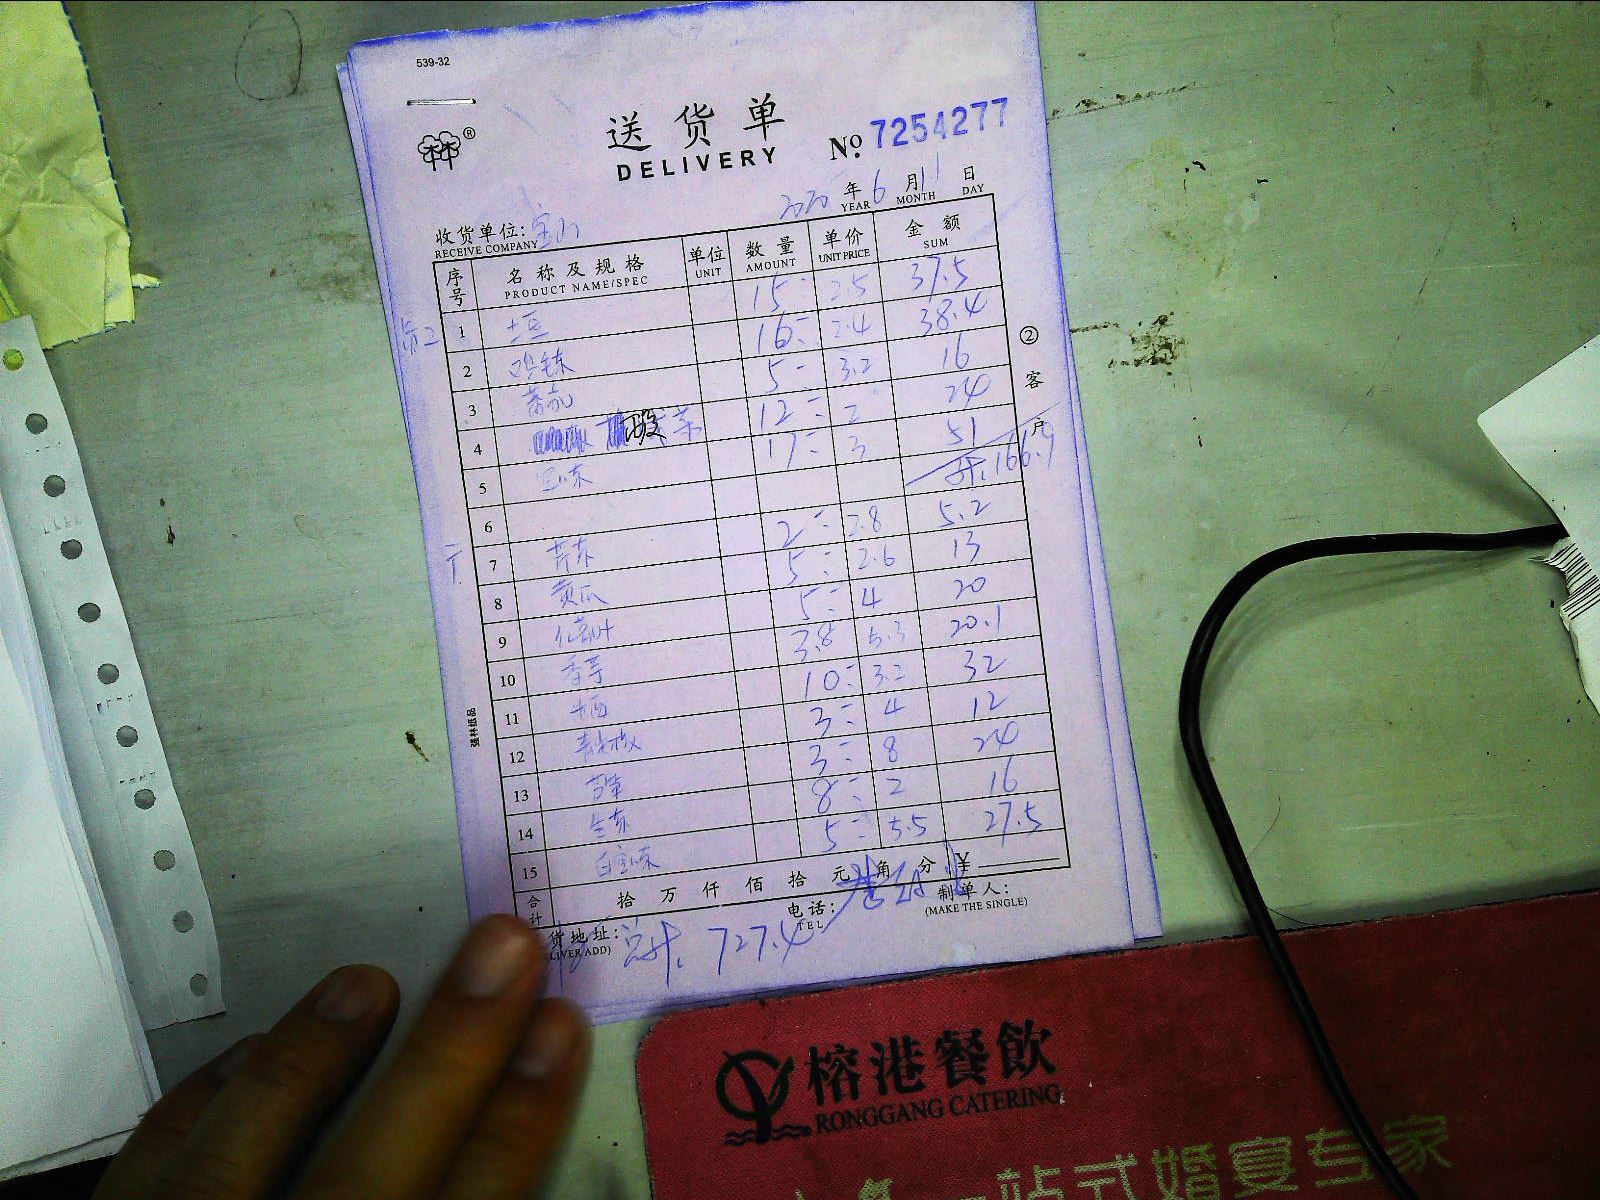 539-32
送货单
DELIVERY
No. 7254277
2020 年 6 月 11 日
YEAR MONTH DAY
收货单位: 宝山
RECEIVE COMPANY
序号 名称及规格 单位 数量 单价 金额
PRODUCT NAME/SPEC UNIT AMOUNT UNIT PRICE SUM
1 土豆 15 2.5 37.5
2 16 2.4 38.4
3 5 3.2 16
4 12 2 24
5 17 3 51
6 计. 166.9
7 2 2.8 5.2
8 黄瓜 5 2.6 13
9 5 4 20
10 香芋 3.8 5.3 20.1
11 10 3.2 32
12 3 4 12
13 3 8 24
14 8 2 16
15 5 5.5 27.5
② 客户
强林纸品
合计 拾 万 仟 佰 拾 元 角 分 ¥
货地址: 电话: 制单人:
LIVER ADD) TEL (MAKE THE SINGLE)
总计. 727.4
榕港餐飲
RONGGANG CATERING
一站式婚宴专家